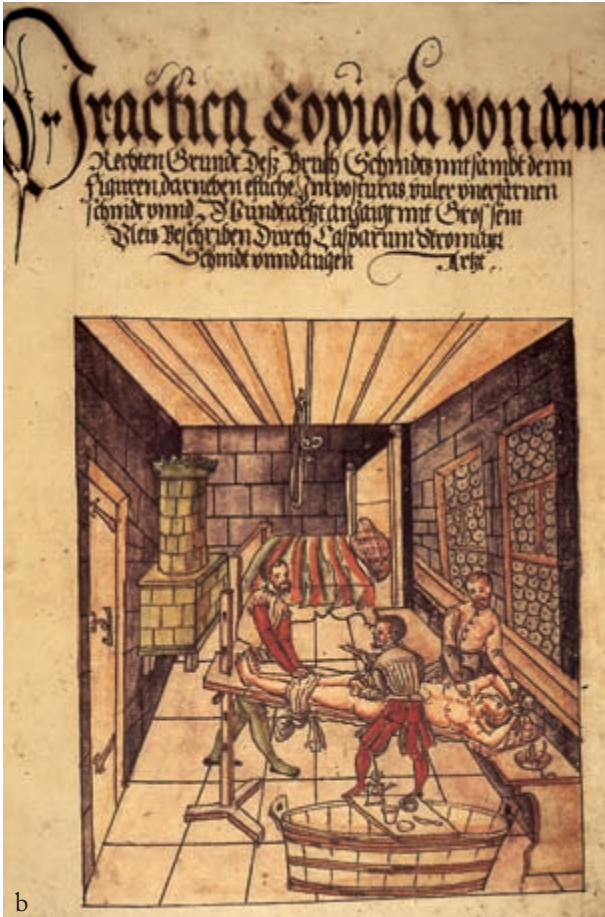 Practica Copiosa von dem
Rechten Grunde Desz Bruch Schnidts mit sambt denn
figuren, darneben etliche Imposturas viller vnerfarnen
schnidt vnnd Wundtartzt anzaigt mit Grossem
Vleis Beschriben Durch Casparum Stromayr
Schnidt vnnd augen Artzt.
b